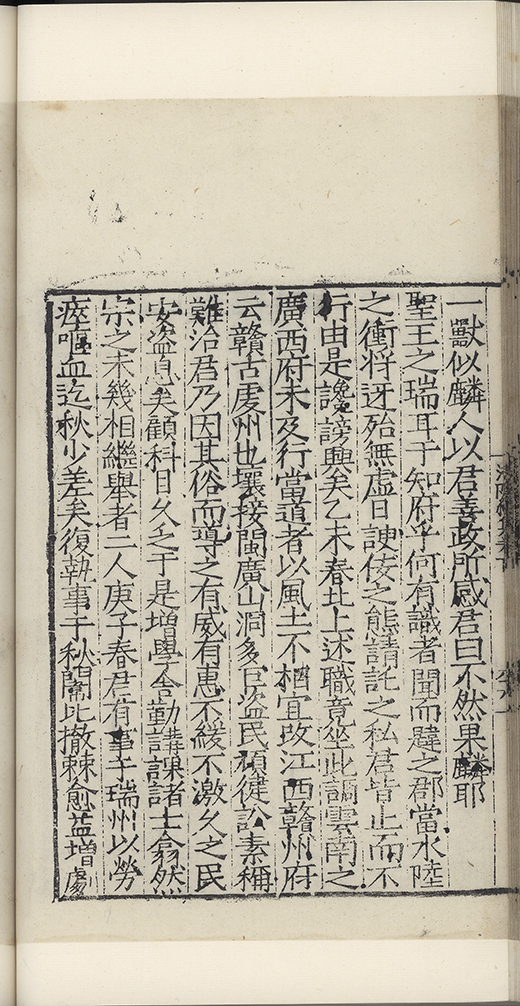 一獸似麟人以君善政所感君曰不然果麟耶
聖王之瑞耳于知府乎何有識者聞而韙之郡當水陸
之衝將迓殆無虛日諛佞之態請託之私君皆止而不
行由是讒謗興矣乙未春北上述職竟坐此調雲南之
廣西府未及行當道者以風土不相宜改江西贛州府
云贛古虔州也壤接閩廣山洞多巨盜民頑健訟素稱
難治君乃因其俗而導之有威有惠不緩不激久之民
安盜息矣顧科目久乏于是增學舍勤講課諸士翕然
宗之未幾相繼舉者二人庚子春君有事于瑞州以勞
瘁嘔血迄秋少差矣復執事于秋闈比撤棘愈益增劇